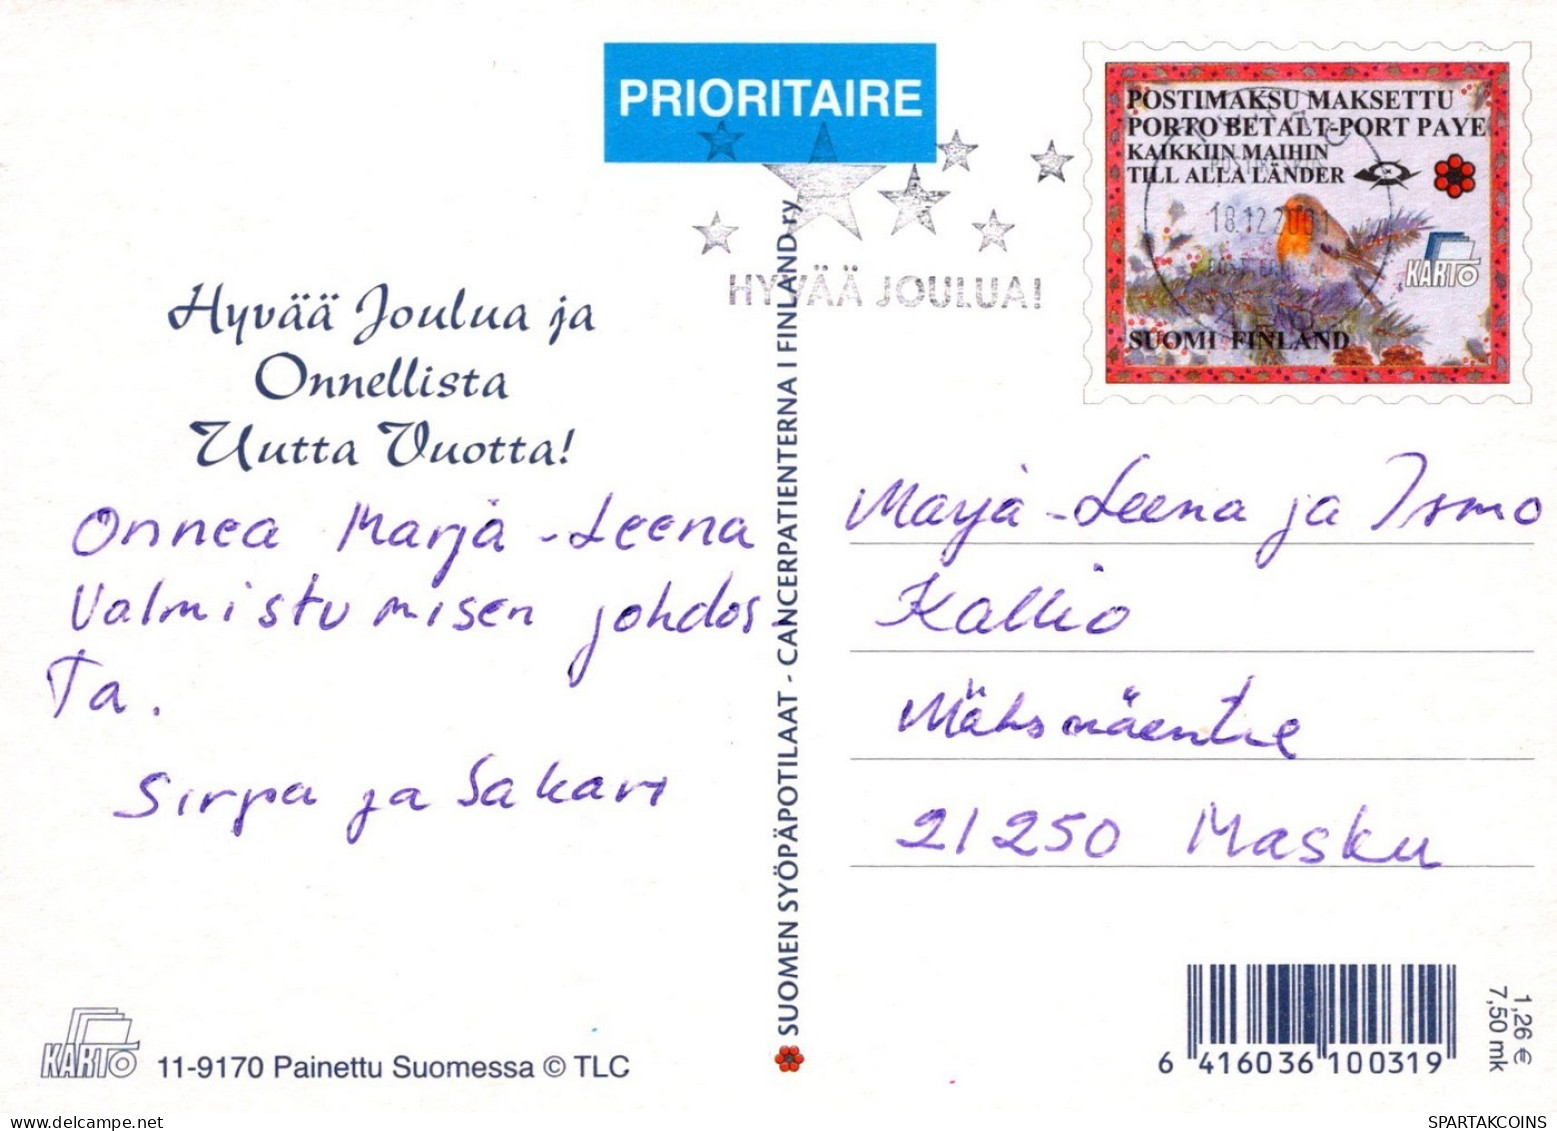 PRIORITAIRE
POSTIMAKSU MAKSETTU
PORTO BETALT-PORT PAYE
KAIKKIIN MAIHIN
TILL ALLA LÄNDER
18.12.2001
KARTO
SUOMI FINLAND
HYVÄÄ JOULUA!
Hyvää Joulua ja
Onnellista
Uutta Vuotta!
Onnea Marja-Leena
Valmistumisen johdos-
Ta.
Sirpa ja Sakari
SUOMEN SYÖPÄPOTILAAT - CANCERPATIENTERNA I FINLAND ry
Marja-Leena ja Ismo
Kallio
21250 Masku
KARTO
11-9170 Painettu Suomessa © TLC
6 416036 100319
1,26 €
7,50 mk
SPARTAKCOINS